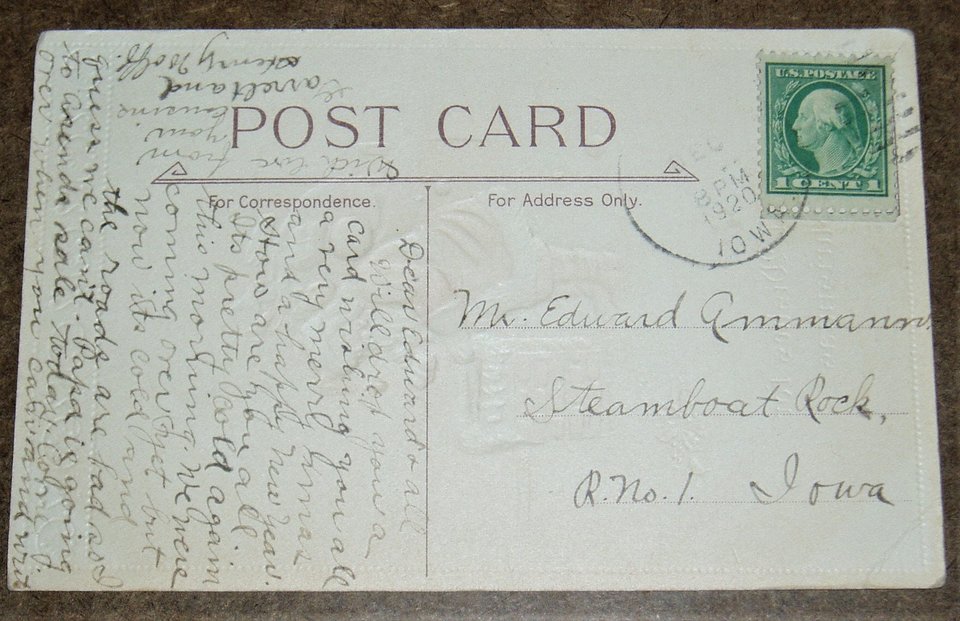 POST CARD
For Correspondence.
For Address Only.
U.S. POSTAGE
1 CENT 1
8 PM
1920
IOWA
Mr. Edward Ammann
Steamboat Rock,
R. No. 1. Iowa
Dear Edward & all
Will drop you a
card wishing you all
a very merry Xmas
and a happy New Year.
How are you all
Its pretty cold again
this morning. We were
coming over yet but
now its cold and
the roads are bad so I
guess we can't. Papa is going
to a sale today. Come
over when you can and write
With love from
your
cousins
and
Henry Wolf.